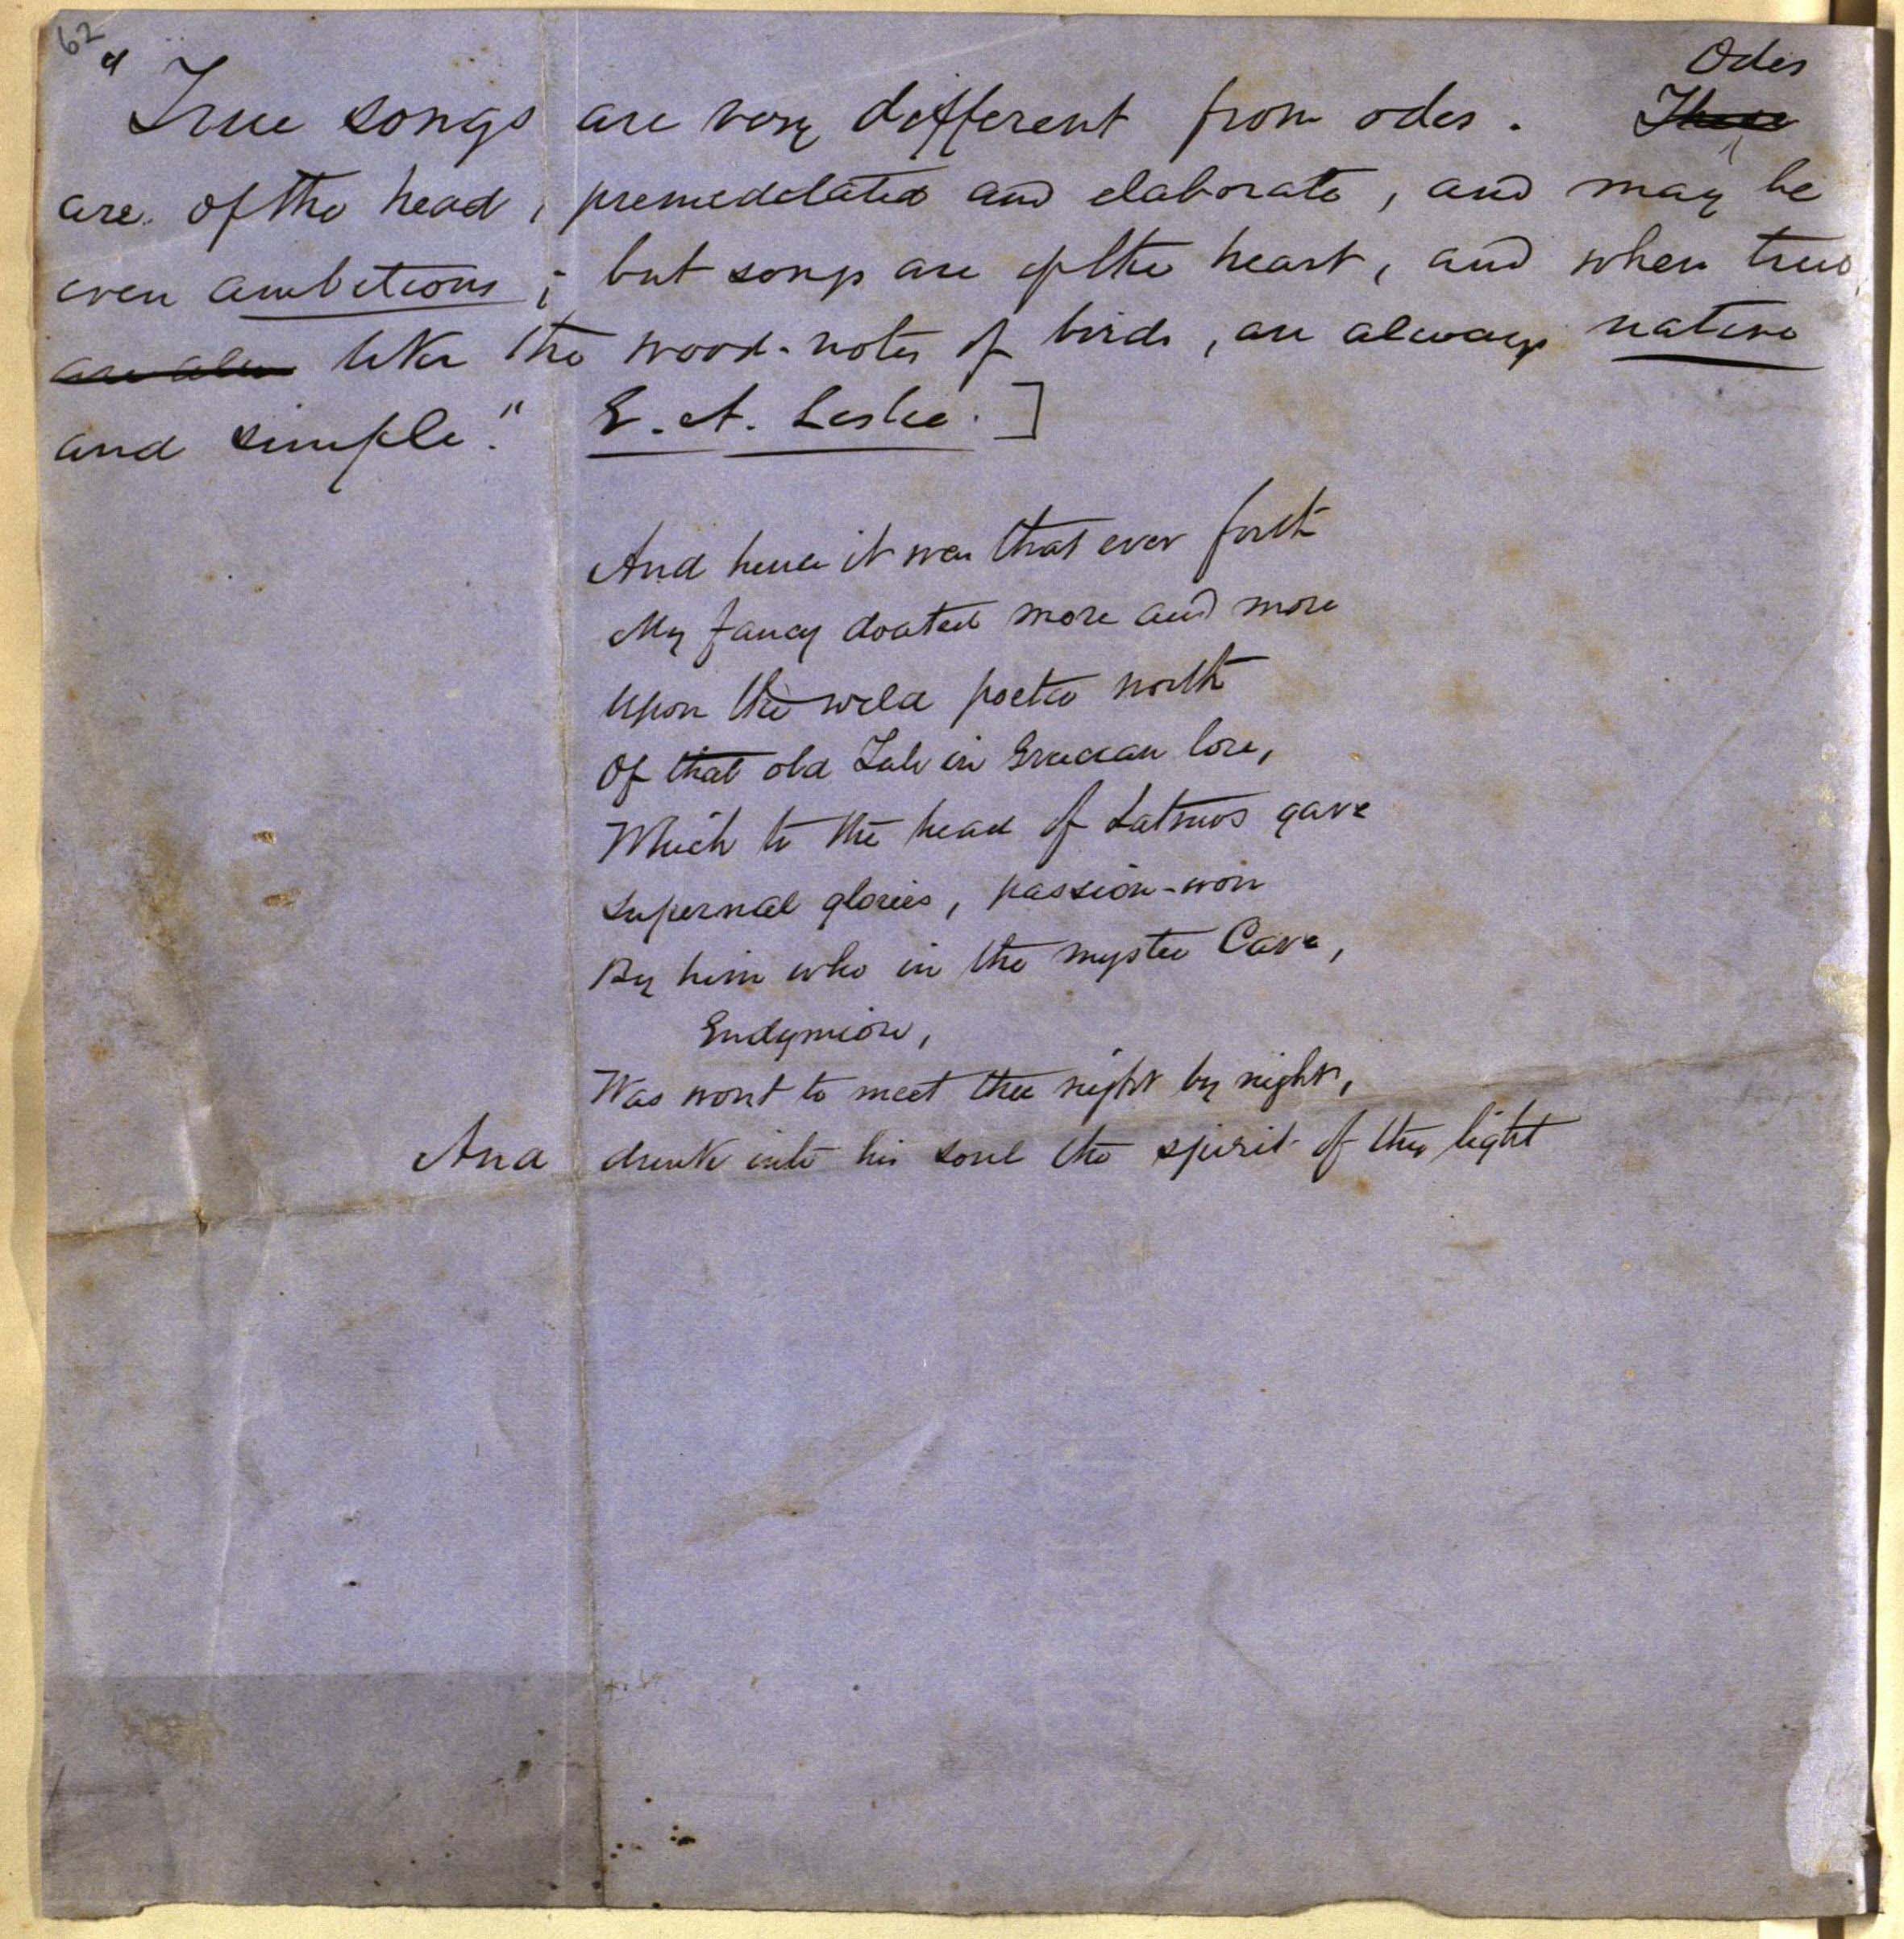 62
"True songs are very different from odes. Odes
These
are of the head, premeditated and elaborate, and may be
even ambitious; but songs are of the heart, and when true,
like the wood-notes of birds, are always native
and simple." E. A. Leslie.]
And hence it was that ever forth
My fancy doated more and more
Upon the wild poetic north
Of that old Tale in Grecian lore,
Which to the head of Latmos gave
Supernal glories, passion-won
By him who in the mystic Cave,
Endymion,
Was wont to meet thee night by night,
And drink into his soul the spirit of thy light